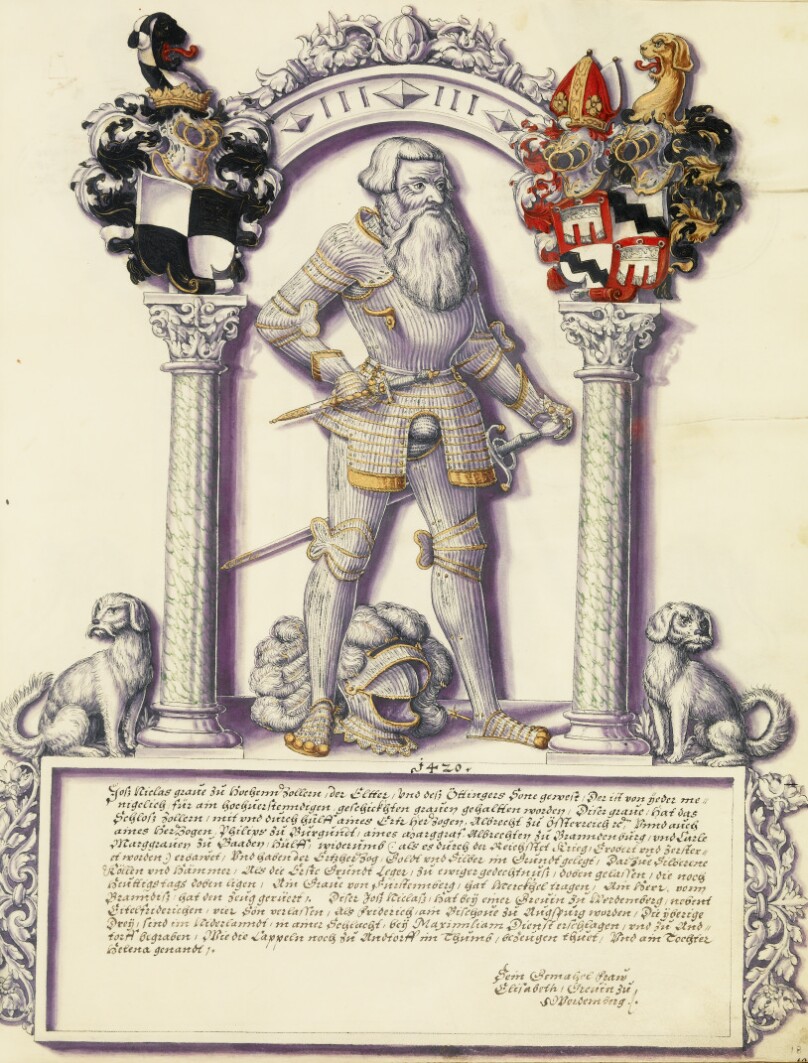 1420.
Joß Niclas graue zu Hochenn Zollern, der Eltter, vnd deß Öttingers Sone gewest, Der ist von yeder me-
nigelich für am hochuerstenndigen, geschickhten grauen gehaltten worden, Diser graue, hat das
Schloß Zollern, mit vnd durch hülff aines Ertz Herzogen, Albrecht zu Össterreich etc. Vnnd auch
aines HerZogen, Philips zu Burgundt, aines Marggraf Albrechten zu Brandenburg, vnd Carle
Marggrauen zu Baaden, Hülff, widerumb (als es durch der Reichstet Krieg Erobert vnd zerster-
et worden) erbawet, Vnd haben der ErtzherZog, Goldt vnd Silber im Grundt gelegt, Darzue Silberene
Köllen vnd Hämmer, Als die Erste Grundt Leger, zu ewiger gedechtnuß, doben gelassen, die noch
Heuttigstags doben ligen, Am Graue von Fürstemberg, hat Merthel tragen, Am Herr, vonn
Branndiß, hat den Zeug gerüert, Diser Joß Niclaß, Hat bey einer Greuin zu Werdemberg, nebent
Eitelfriderichen, vier Son verlassen, als Friderich, am Bischoue zu Augspurg worden, Die yberige
Drey, sind im Niderlanndt, in ainer Schlacht, bey Maximiliam Dienst erschlagen, vnd zu Ant-
torff begraben, Wie die Cappeln noch zu Andtorff im Thumb, bezeugen thuet, Vnd ain Tochter
Helena genandt,
Sein Gemahel fraw
Elisabeth, Greuin zu
Werdemberg.